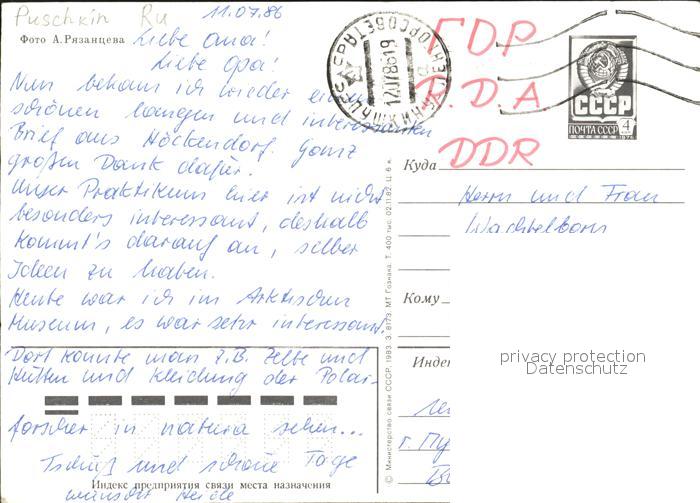 Puschkin Ru
11.07.86
Фото А.Рязанцева
Liebe Oma!
Liebe Opa!
Nun bekam ich wieder einen
schönen langen und interessanten
Brief aus Höckendorf. Ganz
großen Dank dafür.
Unser Praktikum hier ist nicht
besonders interessant, deshalb
kommt's darauf an, selber
Ideen zu haben.
Heute war ich im Arktischen
Museum, es war sehr interessant.
Dort konnte man z.B. Zelte und
Hütten und Kleidung der Polar-
forscher in natura sehen...
Tschüß und schöne Tage
Индекс предприятия связи места назначения
wünscht Heide
ГДР
R.D.A
DDR
СССР
ПОЧТА СССР
4
Куда
Herrn und Frau
Wachtelborn
Кому
Индек
privacy protection
Datenschutz
г. Пу
© Министерство связи СССР, 1983. З. 8173. МТ Гознака. Т. 400 тыс. 02.11.82. Ц. 6 к.